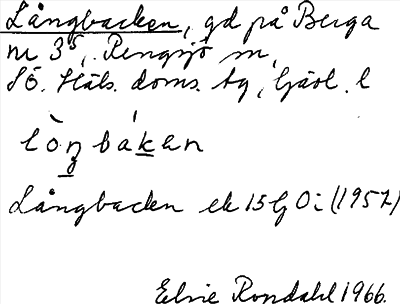 Långbacken, gd på Berga
nr 3⁵, Rengsjö sn,
SÖ. Häls. doms. tg, Gävl. l
lòŋ bákan
Långbacken ek 15 G Oi (1957)
Elvie Rondahl 1966.